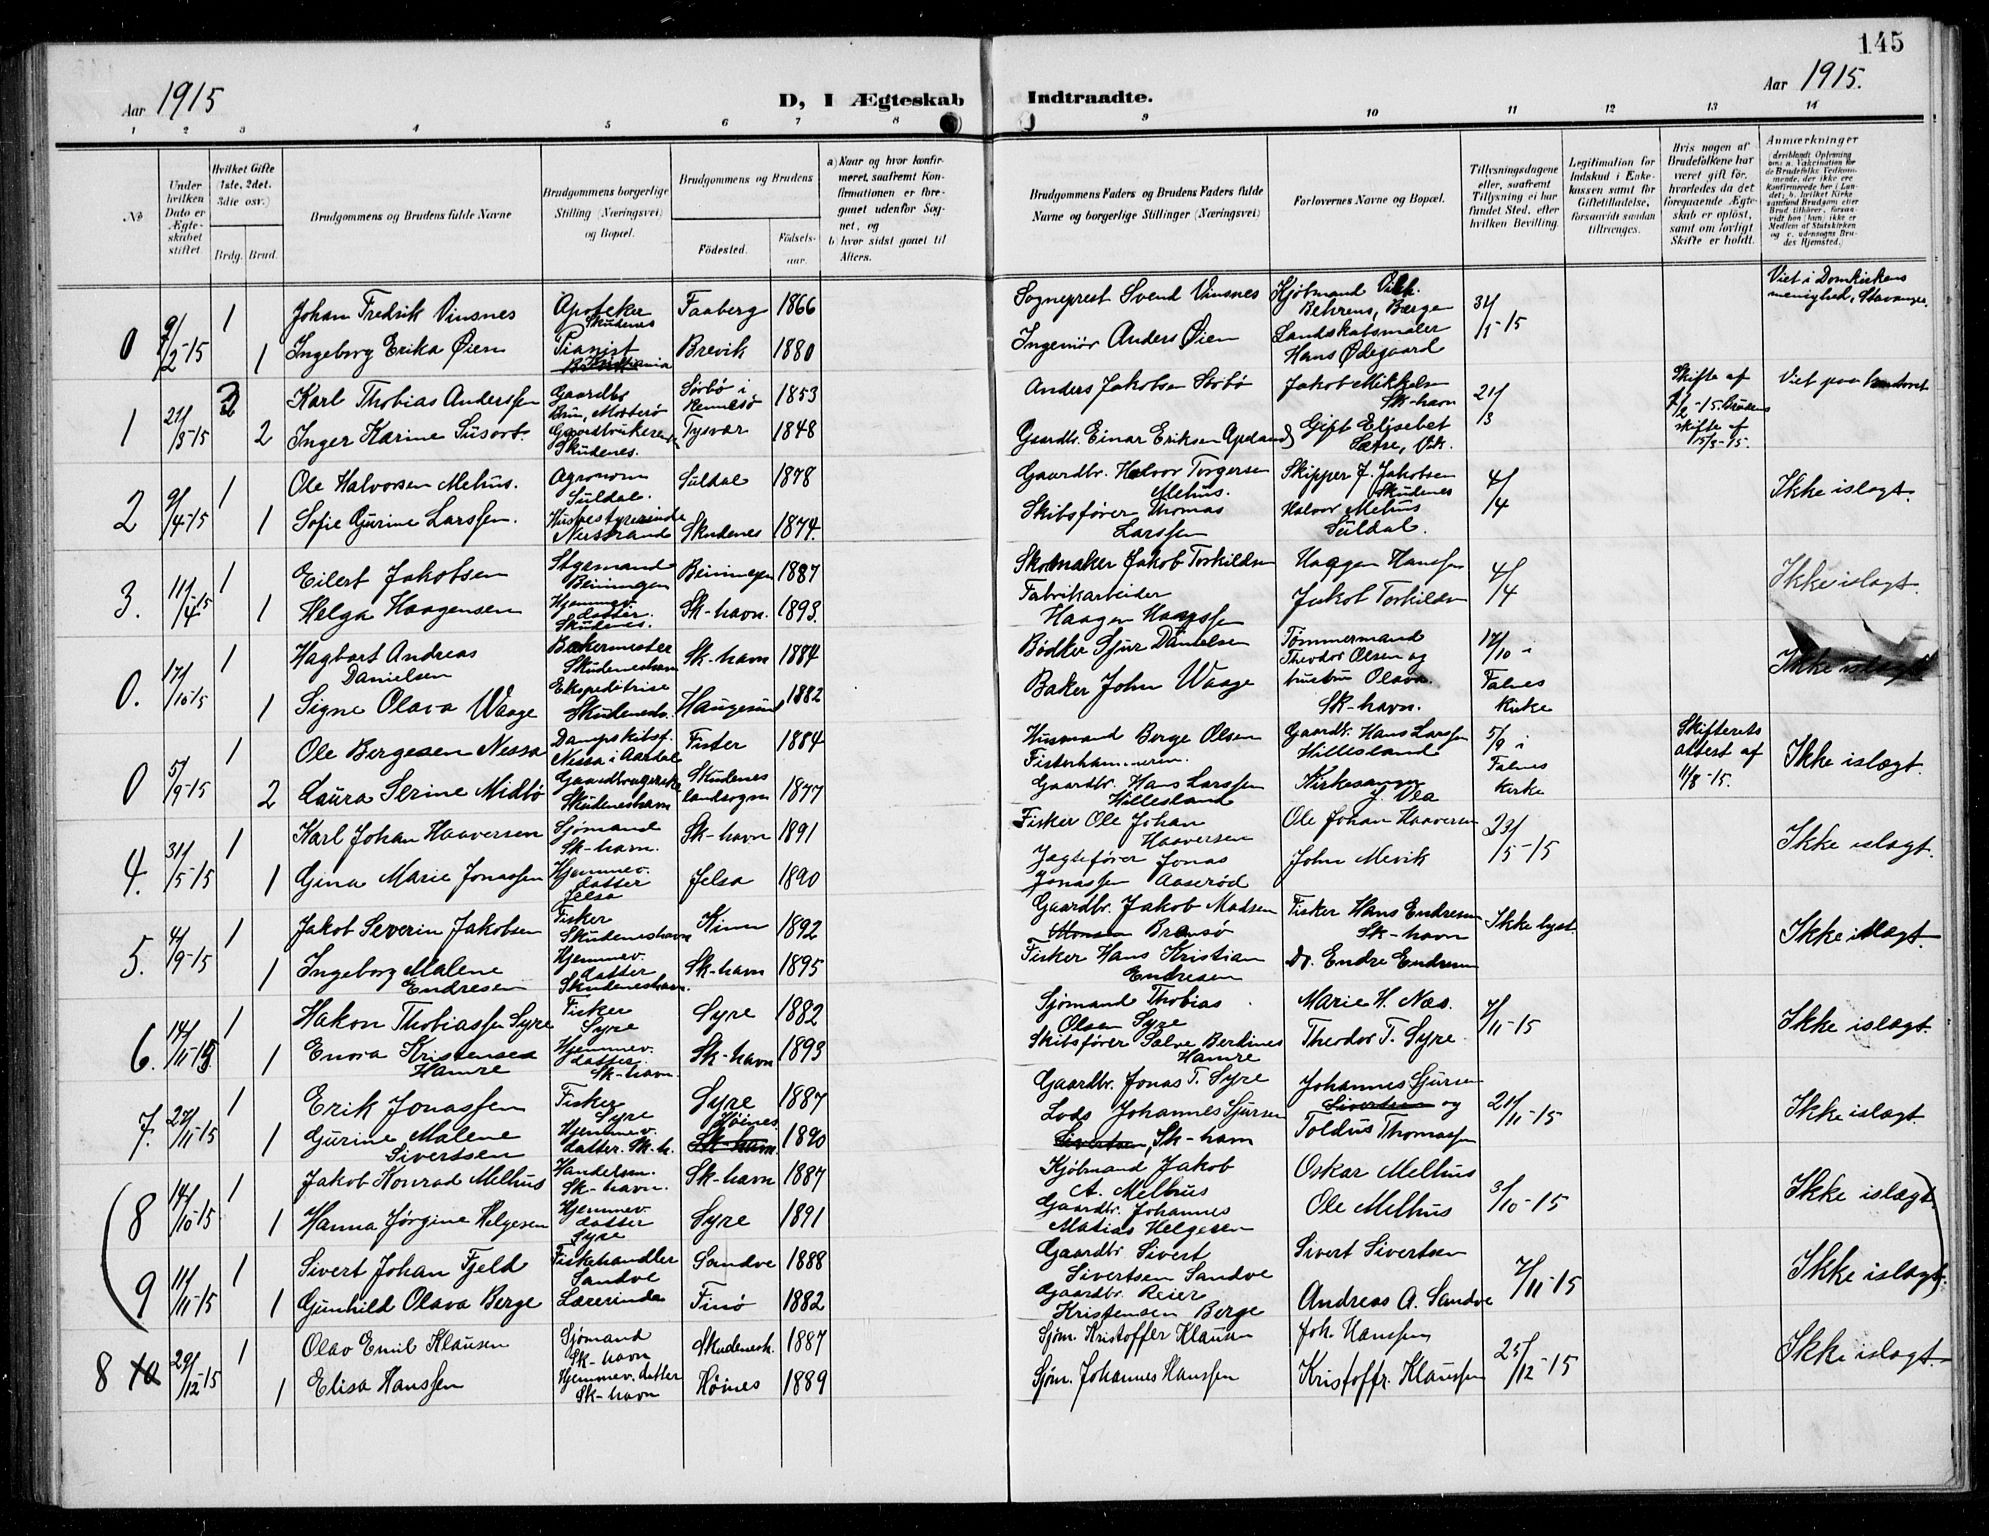 145
Aar 1915
D, I Ægteskab Indtraadte.
Aar 1915.
1 2 3 4 5 6 7 8 9 10 11 12 13 14
№
Under hvilken Dato er Ægteskabet stiftet.
Hvilket Gifte 1ste, 2det, 3die osv.)
Brdg. Brud.
Brudgommens og Brudens fulde Navne
Brudgommens borgerlige Stilling (Næringsvei) og Bopæl.
Brudgommens og Brudens
Födested. Födselsaar.
a) Naar og hvor konfirmeret, saafremt Konfirmationen er foregaaet udenfor Sognet, og
b) hvor sidst gaaet til Alters.
Brudgommens Faders og Brudens Faders fulde Navne og borgerlige Stillinger (Næringsvei)
Forlovernes Navne og Bopæl.
Tillysningsdagene eller, saafremt Tillysning ei har fundet Sted, efter hvilken Bevilling.
Legitimation for Indskud i Enkekassen samt for Giftetilladelse, forsaavidt saadan tiltrænges.
Hvis nogen af Brudefolkene har været gift før, hvorledes da det foregaaende Ægteskab er opløst, samt om lovligt Skifte er holdt.
Anmærkninger
0 9/2-15 1 Johan Fredrik Vinsnes Apoteker Skudenes Faaberg 1866 Sogneprest Svend Vinsnes Kjöbmand Vilh. Behrens, Bergen 31/1-15 Viet i Domkirkens menighed, Stavanger.
1 Ingeborg Erika Øien Pianist Brevik 1880 Ingeniör Anders Øien Landskabsmaler Hans Ødegaard
1 21/3-15 3 Karl Thobias Anderssen Gaardbr. Mosterö Sörbö i Rennesö 1853 Anders Jakobsen Sörbö Jakob Mikkelsen Sk-havn 21/3 Skifte af 7/2-15. Brudens skifte af 15/3-15. Viet paa kontoret
2 Inger Karine Susort. Skudenes. Tysvær 1848 Gaardbr. Einar Eriksen Gift Elisebet Sætre, Vik.
2 9/4-15 1 Ole Halvorsen Mehus. Agronom Suldal. Suldal 1878 Gaardbr. Halvor Torgersen Mehus. Skipper J. Jakobsen Skudenes 4/4 Ikke islægt.
1 Sofie Gurine Larssen. Husbestyrerinde Nerstrand Skudenes 1874. Skibsfører Thomas Larssen Halvor Mehus Suldal.
3. 11/4-15 1 Eilert Jakobsen Beiningen Beiningen 1887 Skomaker Jakob Torkildsen Haagen Hanssen 4/4 Ikke islægt.
1 Helga Haagensen Hjemmev. datter. Skudenes. Sk-havn. 1893. Fabrikarbeider Haagen Jakob Torkildsen
0. 17/10-15 1 Hagbart Andreas Danielsen Bakermester Skudeneshavn Sk-havn 1884 Bödker Sjur Danielsen Tømmermand Theodor Olsen og hustru Olava. Sk-havn. 17/10 i Falnes Kirke Ikke islægt
1 Signe Olava Waage Ekspeditrise Skudenesh. Haugesund 1882 Baker John Waage
0 5/9-15 1 Ole Bergesen Nessa Dampskibsf. Nessa i Aardal Fister 1884 Husmand Berge Olsen Fisterhammeren. Gaardbr. Hans Larssen Hillesland 5/9 i Falnes Kirke Skifterets attest af 11/8-15. Ikke islægt.
2 Laura Serine Midbö Skudeneshavn Skudenes landsogn 1877 Gaardbr. Hans Larssen Hillesland Kirkesanger
4. 31/5-15 1 Karl Johan Haaversen Sjømand Sk-havn. Sk-havn 1891 Fisker Ole Johan Haaversen Ole Johan Haaversen 23/5-15 Ikke islægt.
1 Gina Marie Jonassen Hjemmev. datter Jelsa Jelsa 1890 Jægtefører Jonas Jonassen Aaserød John Mevik
5. 4/9-15 1 Jakob Severin Jakobsen Fisker Skudeneshavn Kinn 1892 Gaardbr. Jakob Madsen Fisker Hans Endresen Sk-havn Ikke lyst. Ikke islægt.
1 Ingeborg Malene Endresen Hjemmev. datter Skudeneshavn. Sk-havn 1895 Fisker Hans Kristian Endresen Do. Endre Endresen
6. 14/11-15 1 Hakon Thobiassen Syre Fisker Syre Syre 1882 Sjømand Thobias Olsen Syre Marie H. Næs. 7/11-15 Ikke islægt.
1 Enora Kristensea Hamre Hjemmev. datter. Sk-havn. Sk-havn 1893 Skibsfører Salve Berdines Hamre Theodor T. Syre
7. 27/11-15 1 Erik Jonassen Fisker Syre Syre 1887 Gaardbr. Jonas T. Syre Johannes Sjursen Sivertsen og 21/11-15 Ikke islægt.
1 Gurine Malene Sivertsen Hjemmev. datter. Sk-h. Høines Sk-havn 1890 Lods Johannes Sjursen Sivertsen, Sk-havn Toldus Thomassen
8 14/10-15 1 Jakob Konrad Melhus Handelsm. Sk-havn. Sk-havn 1887 Kjöbmand Jakob A. Melhus Oskar Melhus 3/10-15 Ikke islægt.
1 Hanna Jørgine Helgesen Hjemmev. datter Syre Syre 1891 Gaardbr. Johannes Matias Helgesen Ole Melhus
9 11/11-15 1 Sivert Johan Fjeld Fiskehandler Sandve Sandve 1888 Gaardbr. Sivert Sivertsen Sandve Sivert Sivertsen 7/11-15 Ikke islægt.
1 Gunhild Olava Berge Lærerinde Finö 1882 Gaardbr. Reier Kristensen Berge Andreas A. Sandve
8 10 29/12-15 1 Olav Emil Klausen Sjømand Sk-havn Skudenesh. 1887 Sjøm. Kristoffer Klausen Joh. Hanssen 25/12-15 Ikke islægt.
1 Elisa Hanssen Hjemmev. datter Sk-havn Høines 1889 Sjøm. Johannes Hanssen Kristoffr. Klaussen